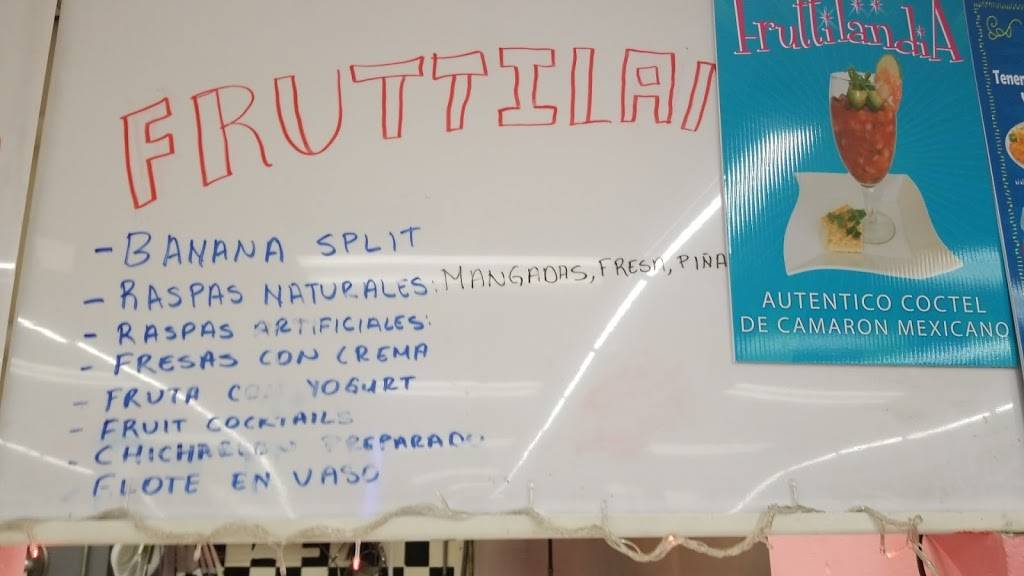 FRUTTILAN
- BANANA SPLIT
- RASPAS NATURALES: MANGADAS, FRESA, PIÑA
- RASPAS ARTIFICIALES:
- FRESAS CON CREMA
- FRUTA CON YOGURT
- FRUIT COCKTAILS
- CHICHARRON PREPARADO
FLOTE EN VASO
FruttilandiA
AUTENTICO COCTEL
DE CAMARON MEXICANO
Tenem